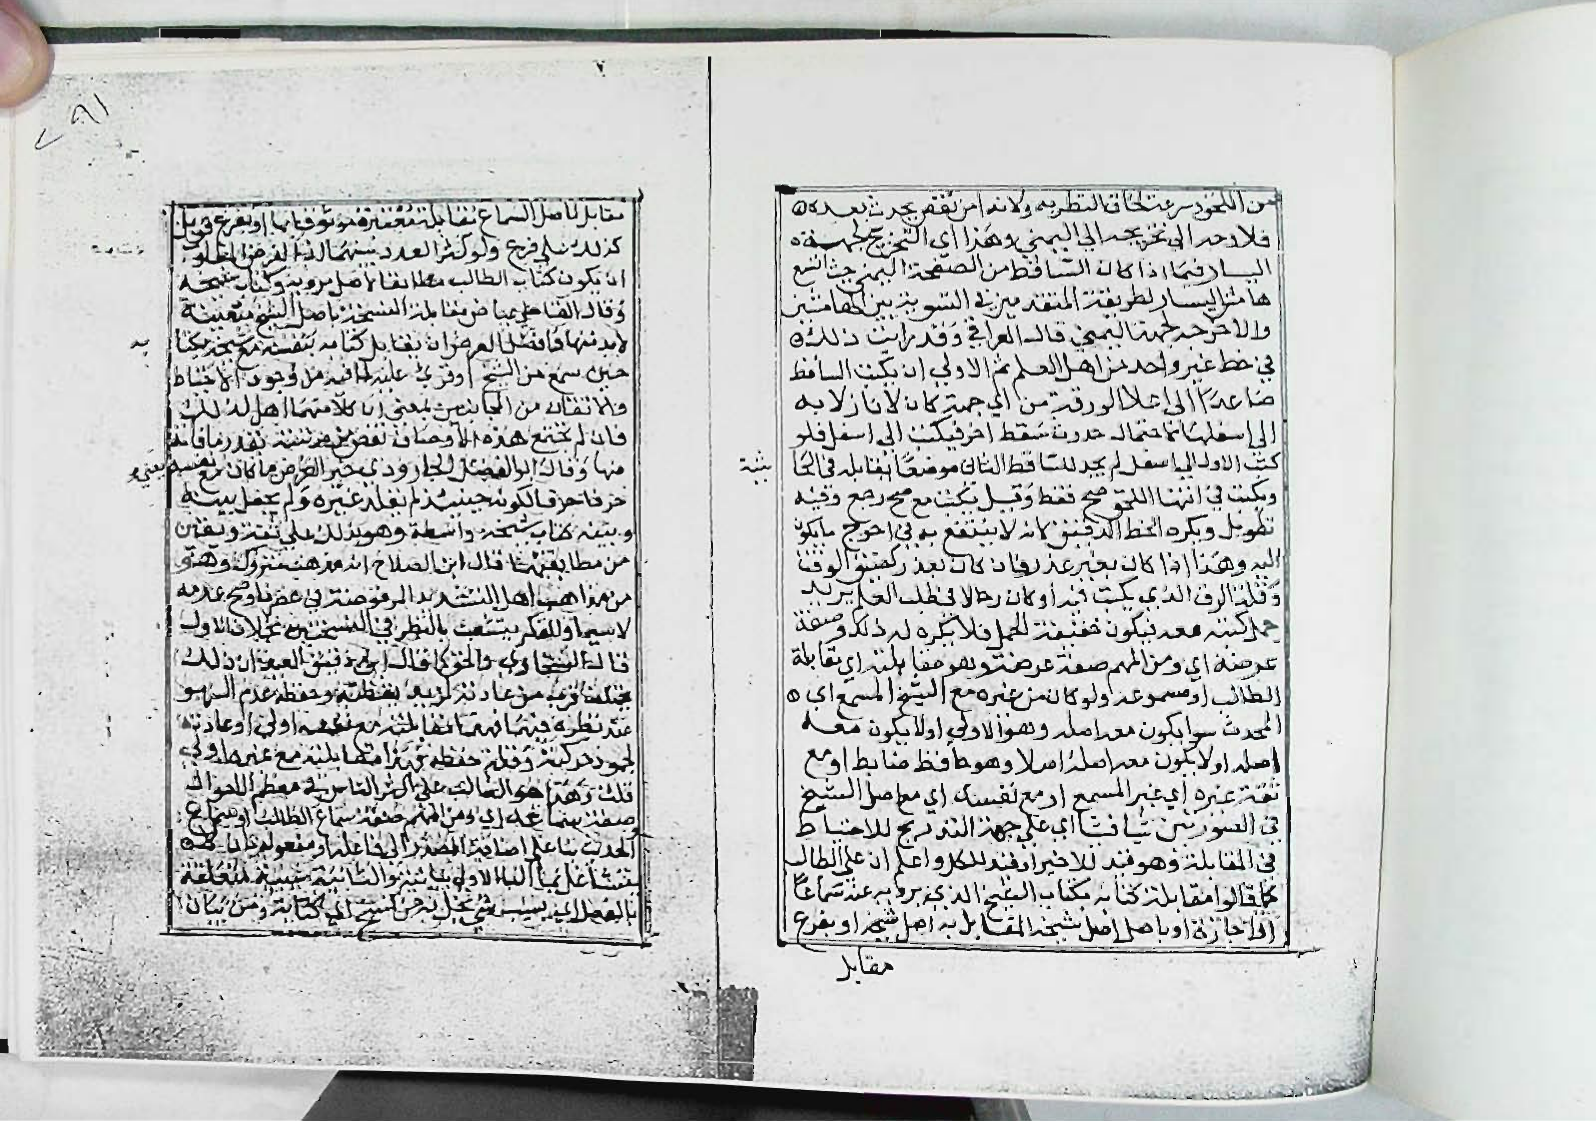 من اللحوق سرعة لحاق النظر به ولانه امن نقص يحدث بعده
فلا وجه الى تخريجه الى اليمنى وهذا اي التخريج لجهة
اليسار فيما اذا كان الساقط من الصفحة اليمنى حيث اتسع
هامش اليسار لطريقة المتقدمين في التسوية بين الهامشين
والاخرجه لجهة اليمنى قال العراقي وقد رايت ذلك
في خط غير واحد من اهل العلم ثم الاولى ان يكتب الساقط
صاعدا الى اعلا الورقة من اي جهة كان لا نازلا به
الى اسفلها لاحتمال حدوث سقط اخر فيكتب الى اسفل فلو
كتب الاول الى اسفل لم يجد للساقط الثاني موضعا يقابله في الحا
شية
ويكتب في انتهاء اللحق صح فقط وقيل يكتب مع صح رجع وفيه
تطويل ويكره الخط الدقيق لانه لا ينتفع به في احوج ما يكون
اليه وهذا اذا كان بغير عذر فان كان بعذر كضيق الورق
وقلة الرق الذي يكتب فيه او كان رحالا في طلب العلم يريد
حمل كتبه معه فيكون خفيفة الحمل فلا يكره له ذلك وصفة
عرضه اي ومن المهم صفة عرضه وهو مقابلته اي مقابلة
الطالب او مسموعه ولو كان من غيره مع الشيخ المسمع اي
المحدث سوا يكون معه اصله وهو الاولى اولا يكون معه
اصله اولا يكون معه اصله اصلا وهو حافظ ضابط او مع
ثقة غيره اي غير المسمع او مع نفسه اي مع اصل الشيخ
في الصورتين شيا فشيا اي على جهة التدريج للاحتياط
في المقابلة وهو قيد للاخير او قيد للكل واعلم ان على الطالب
كما قالوا مقابلة كتابه بكتاب الشيخ الذي يرويه عنه سماعا
او اجازة او باصل اصل شيخه المقابل به اصل شيخه او بفرع
مقابل
مقابل باصل السماع مقابلة معتبرة موثوق بها او بفرع قوبل
كذلك على فرع ولو كثر العدد بينهما اذ الغرض المطلوب
ان يكون كتاب الطالب مطابقا لاصل مرويه وكتاب شيخه
وقال القاضي عياض مقابلة النسخة باصل الشيخ متعينة
لابد منها وافضل العرض ان يقابل كتابه بنفسه مع شيخه بكتا
به
حين سمع من الشيخ او قرئ عليه لما فيه من وجود الاحتياط
والاتقان من الجانبين بمعنى ان كلا منهما اهل لذلك
فان لم تجتمع هذه الاوصاف نقص من مرتبته بقدر ما فاته
منها وقال ابو الفضل الجارودي خير العرض ما كان مع نفسه يعني
حرفا حرفا لكونه حينئذ لم يقلد غيره ولم يجعل بينه
وبين كتاب شيخه واسطة وهو بذلك على ثقة ويقين
من مطابقتهما قال ابن الصلاح انه مذهب متروك وهو
من مذاهب اهل التشديد المرفوضة في عصرنا وصح عدمه
لاسيما والفكر يتشعب بالنظر في النسختين بخلاف الاول
قال السخاوي والحق كما قال ابن دقيق العيد ان ذلك
يختلف فرب من عادته لمزيد يقظته وحفظه عدم السهو
عند نظره فيهما فهذا مقابلته مع نفسه اولى او عادته
لجمود حركته وقلة حفظه فهذا مقابلته مع غيره اولى
قلت وهذا هو الغالب على اكثر الناس في معظم الاحوال
صفة سماعه اي ومن المهم صفة سماع الطالب او سماع
المحدث بناء على اضافة المصدر الى فاعله او مفعوله بان
يتشاغل بما الباء الاولى والثانية سببية متعلقة
بالفعل اي بسبب شي يخل به من نسخ اي كتابة ومن بيان